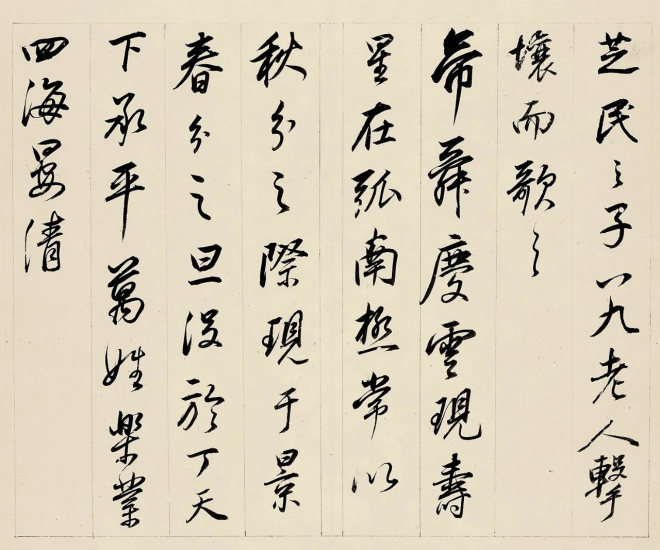 芝民之子八九老人擊
壤而歌之
帝舜慶雲現壽
星在弧南極常以
秋分之際現于景
春分之旦没於丁天
下承平萬姓樂業
四海晏清